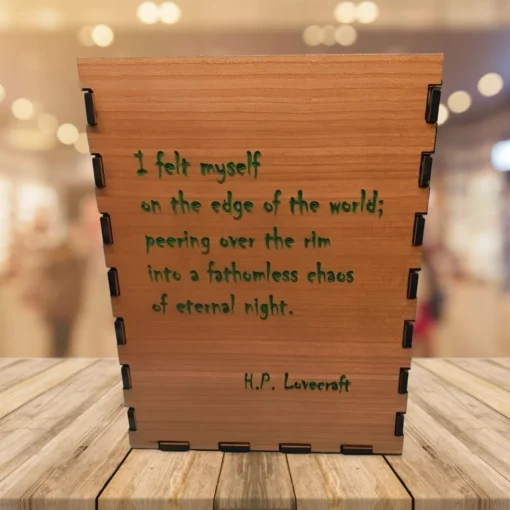 I felt myself
on the edge of the world;
peering over the rim
into a fathomless chaos
of eternal night.
H.P. Lovecraft